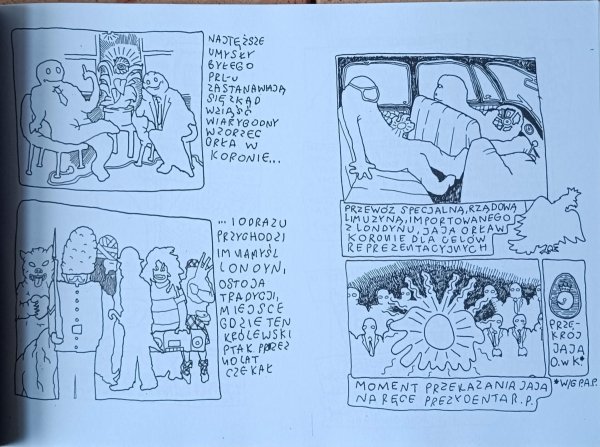 NAJTĘŻSZE
UMYSŁY
BYŁEGO
PRL-U
ZASTANAWIAJĄ
SIĘ SKĄD
WZIĄŚĆ
WIARYGODNY
WZORZEC
ORŁA W
KORONIE...
... I ODRAZU
PRZYCHODZI
IM NA MYŚL
LONDYN,
OSTOJA
TRADYCJI,
MIEJSCE
GDZIE TEN
KRÓLEWSKI
PTAK PRZEZ
40 LAT
CZEKAŁ
PRZEWÓZ SPECJALNĄ, RZĄDOWĄ
LIMUZYNĄ, IMPORTOWANEGO
Z LONDYNU, JAJA ORŁA W
KORONIE DLA CELÓW
REPREZENTACYJNYCH
MOMENT PRZEKAZANIA JAJA
NA RĘCE PREZYDENTA R.P.
PRZE-
KRÓJ
JAJA
O.W K*
*W/G P.A.P.